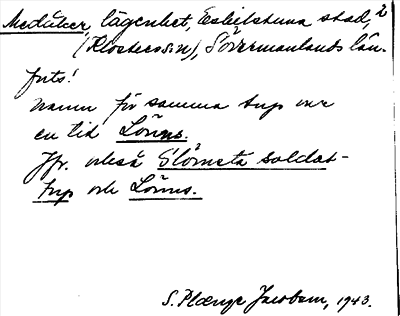 Medåker, lägenhet, Eskilstuna stad, 2
(Klosters sn), Södermanlands län.
forts!
namn för samma torp var
en tid Lönns.
Jfr. också Slömsta soldat-
torp och Lönns.
S. Plænge Jacobson, 1943.